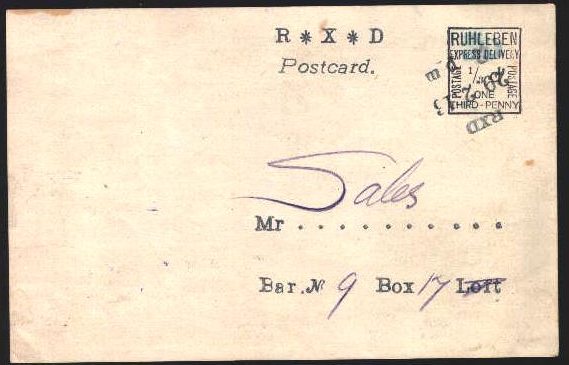 R*X*D
Postcard.
RUHLEBEN
EXPRESS DELIVERY
POSTAGE 1/3 POSTAGE
ONE
THIRD-PENNY
RXD
Sales
Mr ...........
Bar.No 9 Box 17 Loft